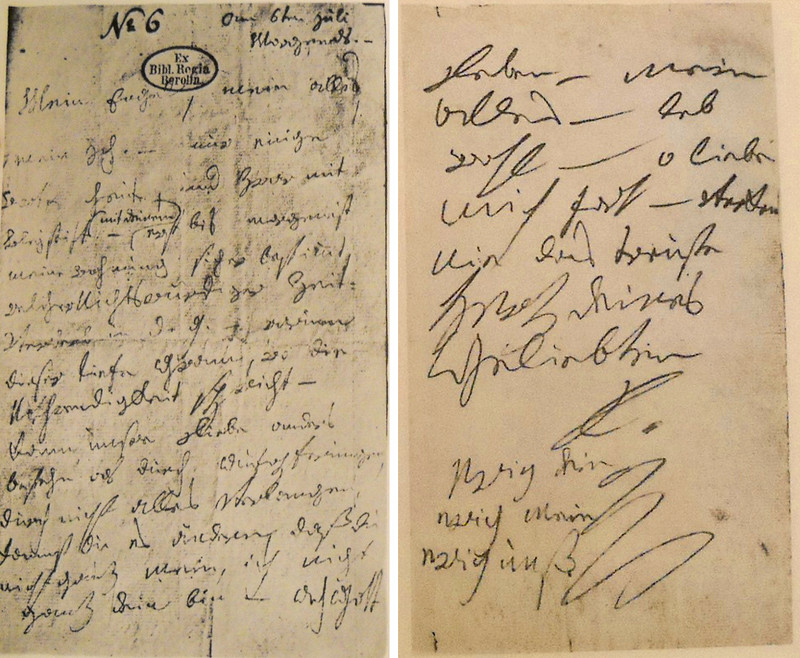 No 6 am 6ten Juli
Morgends. –
Ex
Bibl. Regia
Berolin.
Mein Engel, mein alles
mein Ich. – nur einige
Worte heute, und zwar mit
Bleystift – (mit deinem) erst bis morgen ist
meine Wohnung sicher bestimmt,
welcher Nichtswürdiger Zeit-
verderb in d. g. – warum
dieser tiefe Gram, wo die
Nothwendigkeit spricht –
Kann unsre Liebe anders
bestehn als durch Aufopferungen,
durch nicht alles verlangen,
kannst du es ändern, daß du
nicht ganz mein, ich nicht
ganz dein bin – Ach Gott
Leben – mein
alles – leb
wohl – o liebe
mich fort –
nie das treuste
Herz deines
Geliebten
L.
ewig dein
ewig mein
ewig unß